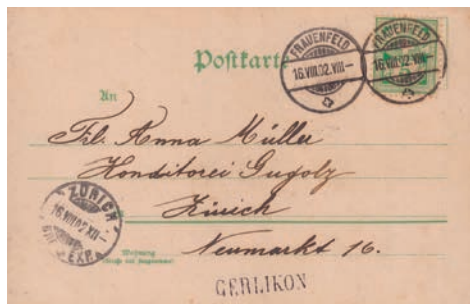 Postkarte
FRAUENFELD
16.VIII.02.VIII-
FRAUENFELD
16.VIII.02.VIII-
An
Frl. Anna Müller
Konditorei Gugolz
Zürich
ZÜRICH
16.VIII.02.XII-
EXP.
Neumarkt 16.
Wohnung
(Straße und Hausnummer)
OERLIKON